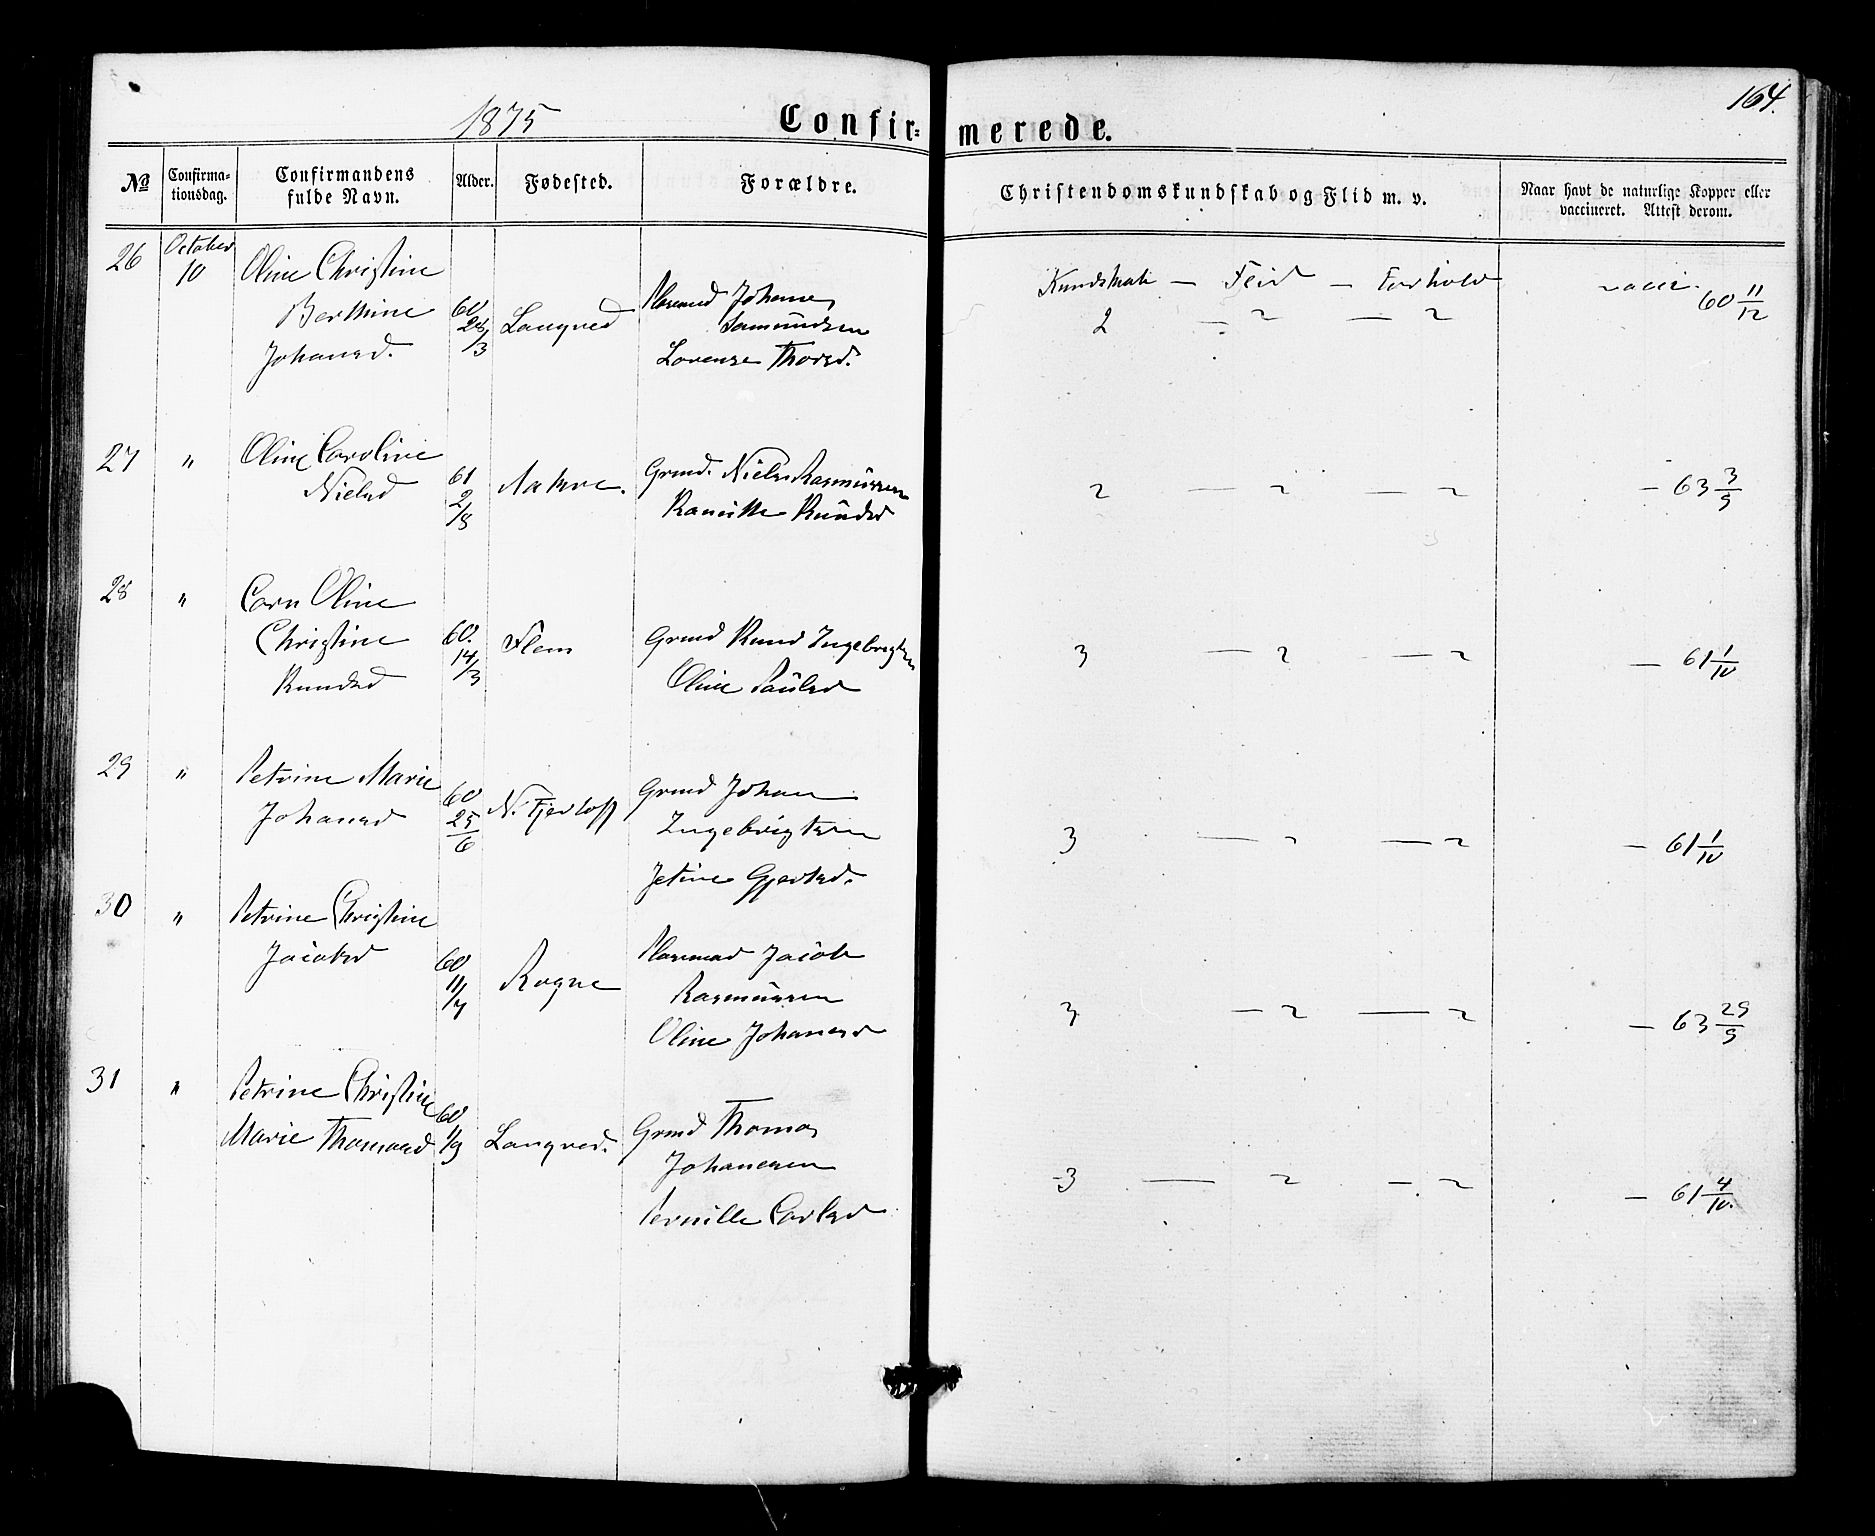 164.
1875 Confirmerede.
No Confirmationsdag. Confirmandens fulde Navn. Alder. Fødested. Forældre. Christendomskundskab og Flid m. v. Naar havt de naturlige Kopper eller vaccineret. Attest derom.
26 October 10 Oline Christine Berthine Johansd. 60 28/3 Longved Johannes Samundsen Lorense Thorsd. Kundskab — Flid — Forhold 2 — 2 — 2 vacci. 60 11/12
27 " Oline Caroline Nielsd 61 2/8 Aakre. Grmd. Niels Rasmussen Knudsd 2 — 2 — 2 — 63 3/9
28 " Oline Christine Knudsd 60. 14/3 Flem Grmd Knud Ingebrigtsen Oline Paulsd 3 — 2 — 2 — 61 1/10
29 " Petrine Marie Johansd 60 25/6 N. Fjertoft Grmd Johan Ingebrigtsen Jetine Gjertsd. 3 — 2 — 2 — 61 1/10
30 " Petrine Christine Jacobsd 60 11/7 Rogne Jacob Rasmussen Oline Johansd 3 — 2 — 2 — 63 29/9
31 " Petrine Christine Marie Thomasd 60 1/9 Longved. Grmd Thomas Johannesen Pernille Carlsd 3 — 2 — 2 — 61 4/10.